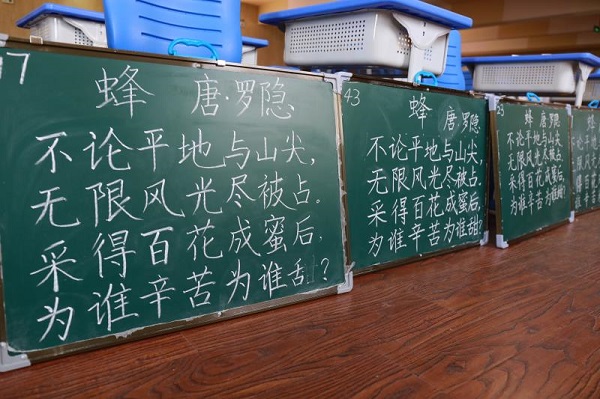 17
蜂 唐·罗隐
不论平地与山尖,
无限风光尽被占。
采得百花成蜜后,
为谁辛苦为谁甜?
43
蜂 唐·罗隐
不论平地与山尖,
无限风光尽被占。
采得百花成蜜后,
为谁辛苦为谁甜?
蜂 唐·罗隐
不论平地与山尖,
无限风光尽被占。
采得百花成蜜后,
为谁辛苦为谁甜?